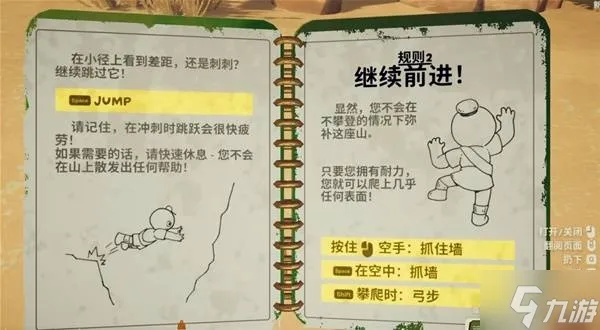 在小径上看到差距，还是刺刺？
继续跳过它！
Space JUMP
请记住，在冲刺时跳跃会很快疲
劳！
如果需要的话，请快速休息 - 您不会
在山上散发出任何帮助！
规则2
继续前进！
显然，您不会在
不攀登的情况下弥
补这座山。
只要您拥有耐力，
您就可以爬上几乎
任何表面！
按住 空手：抓住墙
Space 在空中：抓墙
Shift 攀爬时：弓步
打开/关闭
翻阅页面
扔下
九游